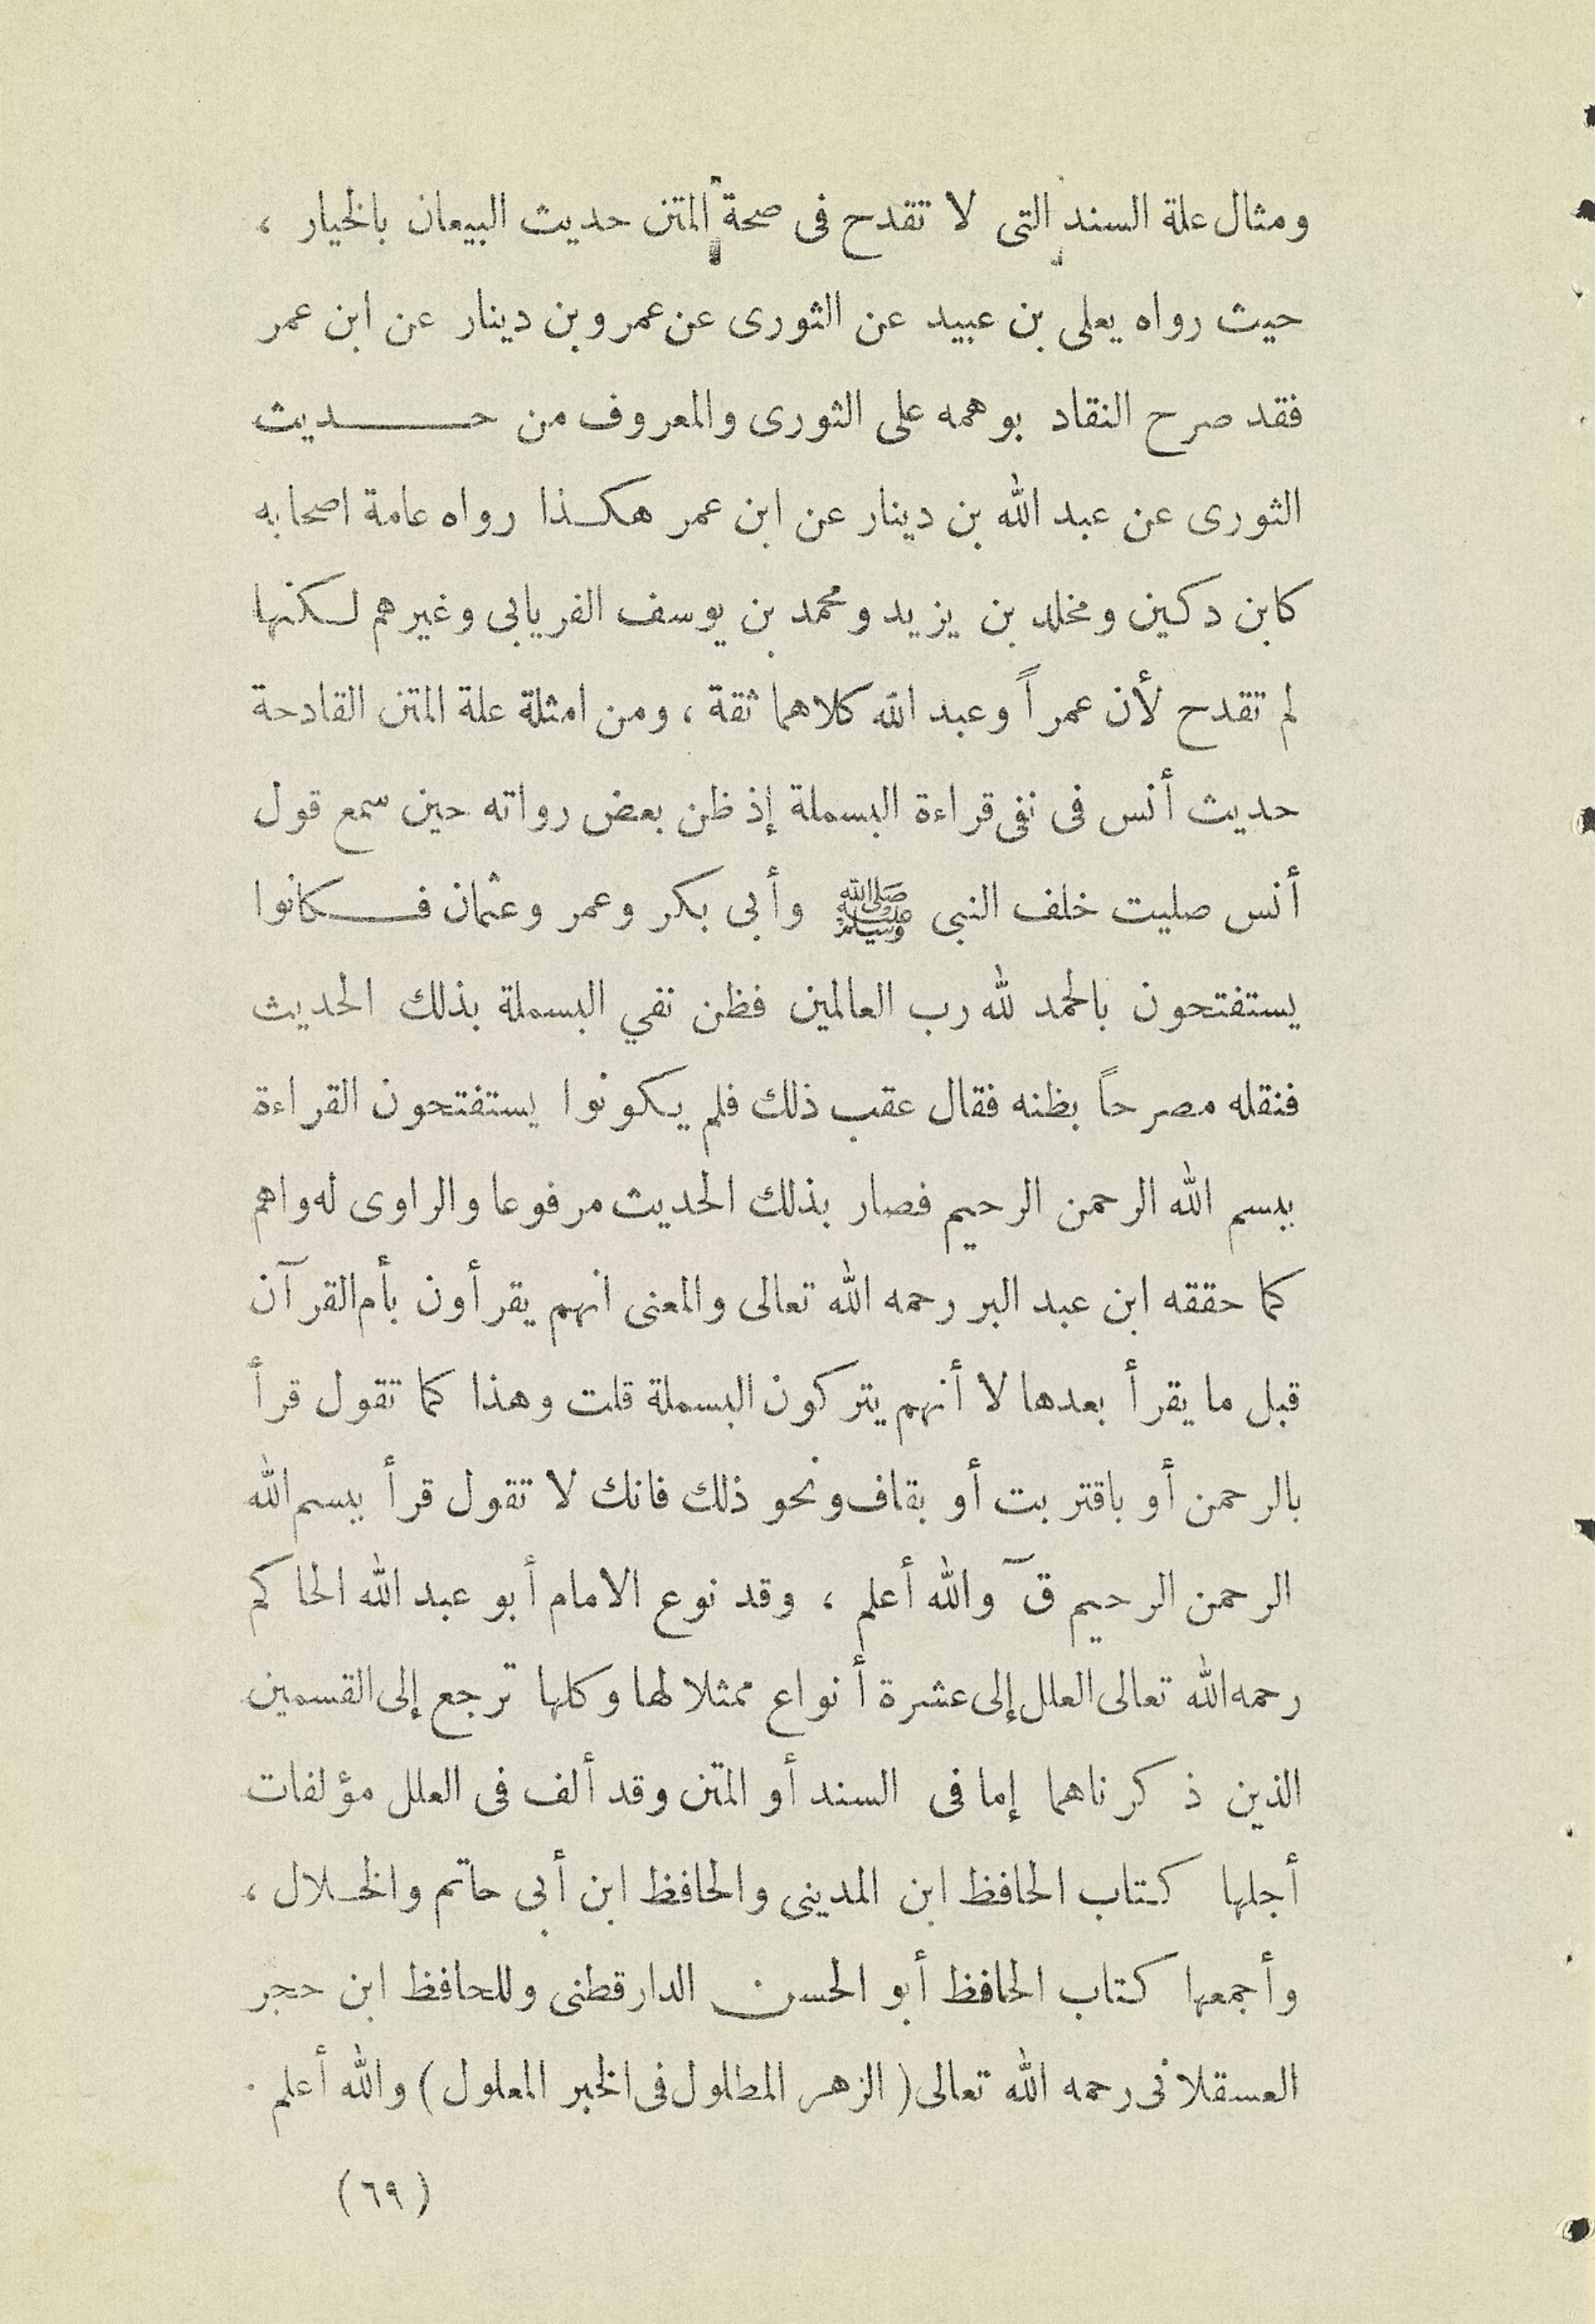 ومثال علة السند التى لا تقدح فى صحة المتن حديث البيعان بالخيار ،
حيث رواه يعلى بن عبيد عن الثورى عن عمرو بن دينار عن ابن عمر
فقد صرح النقاد بوهمه على الثورى والمعروف من حـــديث
الثورى عن عبد الله بن دينار عن ابن عمر هكـذا رواه عامة اصحابه
كابن دكين ومخلد بن يزيد ومحمد بن يوسف الفريابى وغيرهم لـكنها
لم تقدح لأن عمراً وعبد الله كلاهما ثقة ، ومن امثلة علة المتن القادحة
حديث أنس فى نفى قراءة البسملة إذ ظن بعض رواته حين سمع قول
أنس صليت خلف النبى ﷺ وأبى بكر وعمر وعثمان فـكانوا
يستفتحون بالحمد لله رب العالمين فظن نفي البسملة بذلك الحديث
فنقله مصرحاً بظنه فقال عقب ذلك فلم يـكونوا يستفتحون القراءة
ببسم الله الرحمن الرحيم فصار بذلك الحديث مرفوعا والراوى له واهم
كما حققه ابن عبد البر رحمه الله تعالى والمعنى انهم يقرأون بأم القرآن
قبل ما يقرأ بعدها لا أنهم يتركون البسملة قلت وهذا كما تقول قرأ
بالرحمن أو باقتربت أو بقاف ونحو ذلك فانك لا تقول قرأ ببسم الله
الرحمن الرحيم قٓ والله أعلم ، وقد نوع الامام أبو عبد الله الحاكم
رحمه الله تعالى العلل إلى عشرة أنواع ممثلا لها وكلها ترجع إلى القسمين
الذين ذكرناهما إما فى السند أو المتن وقد ألف فى العلل مؤلفات
أجلها كـتاب الحافظ ابن المدينى والحافظ ابن أبى حاتم والخـلال ،
وأجمعها كـتاب الحافظ أبو الحسن الدارقطنى وللحافظ ابن حجر
العسقلانى رحمه الله تعالى ( الزهر المطلول فى الخبر المعلول ) والله أعلم .
( ٦٩ )